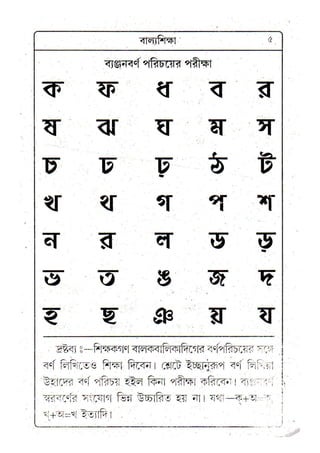 বাল্যশিক্ষা ৫
ব্যঞ্জনবর্ণ পরিচয়ের পরীক্ষা
ক ফ ধ ব র
ষ ঝ ঘ ম স
চ ঢ ঢ় ঠ ট
খ থ গ প শ
ন র ল ড ড়
ভ ত ঙ জ দ
হ ছ ঞ য় য
দ্রষ্টব্য ঃ—শিক্ষকগণ বালকবালিকাদিগের বর্ণপরিচয়ের সঙ্গে
বর্ণ লিখিতেও শিক্ষা দিবেন। শ্লেটে ইচ্ছানুরূপ বর্ণ লিখিয়া
উহাদের বর্ণ পরিচয় হইল কিনা পরীক্ষা করিবেন। ব্যঞ্জনবর্ণ
স্বরবর্ণের সংযোগ ভিন্ন উচ্চারিত হয় না। যথা—ক্+অ=ক,
খ্+অ=খ ইত্যাদি।